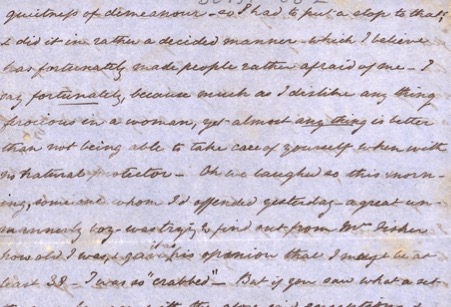 quietness of demeanour - so I had to put a stop to that;
& did it in rather a decided manner - which I believe
has fortunately made people rather afraid of me - I
say fortunately, because much as I dislike any thing
ferocious in a woman, yet almost any thing is better
than not being able to take care of yourself when with
no natural protector - Oh we laughed so this morn-
ing, some one whom I'd offended yesterday - a great un-
mannerly boy - was trying to find out from Mrs Fisher
how old I was, & gave it as his opinion that I might be at
least 38 - I was so "crabbed" - But if you saw what a set